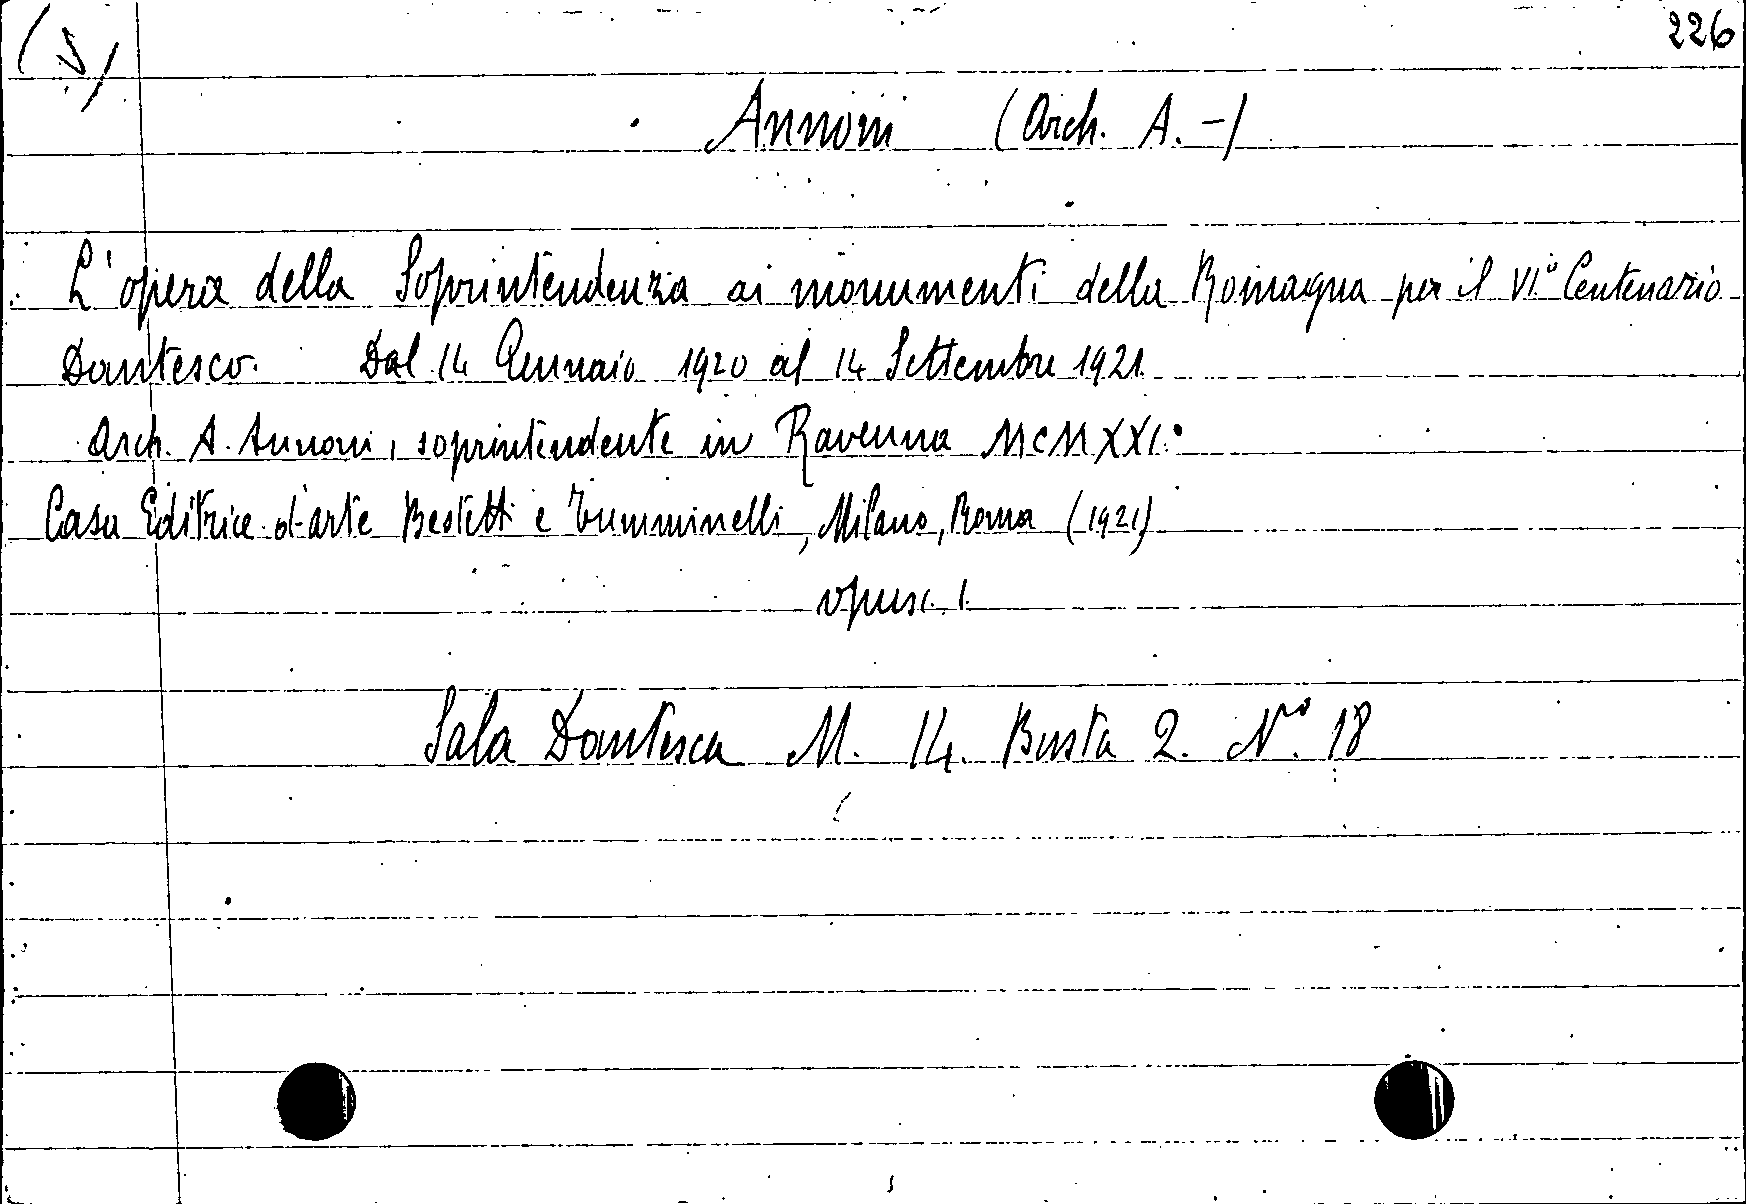 226
Annoni (Arch. A. -)
L'opera della Soprintendenza ai monumenti della Romagna per il VI° Centenario
Dantesco. Dal 14 Gennaio 1920 al 14 Settembre 1921
Arch. A. Annoni, soprintendente in Ravenna MCMXXI.
Casa Editrice d'arte Bestetti e Tumminelli, Milano, Roma (1921)
opusc. 1.
Sala Dantesca M. 14. Busta 2. N.º 18